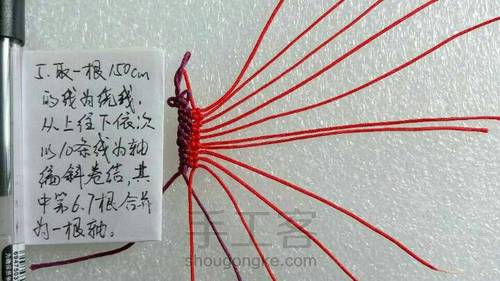 5.取一根150cm
的线为绕线，
从上往下依次
以10条线为轴
编斜卷结，其
中第6.7根合并
为一根轴。
手工客
shougongke.com